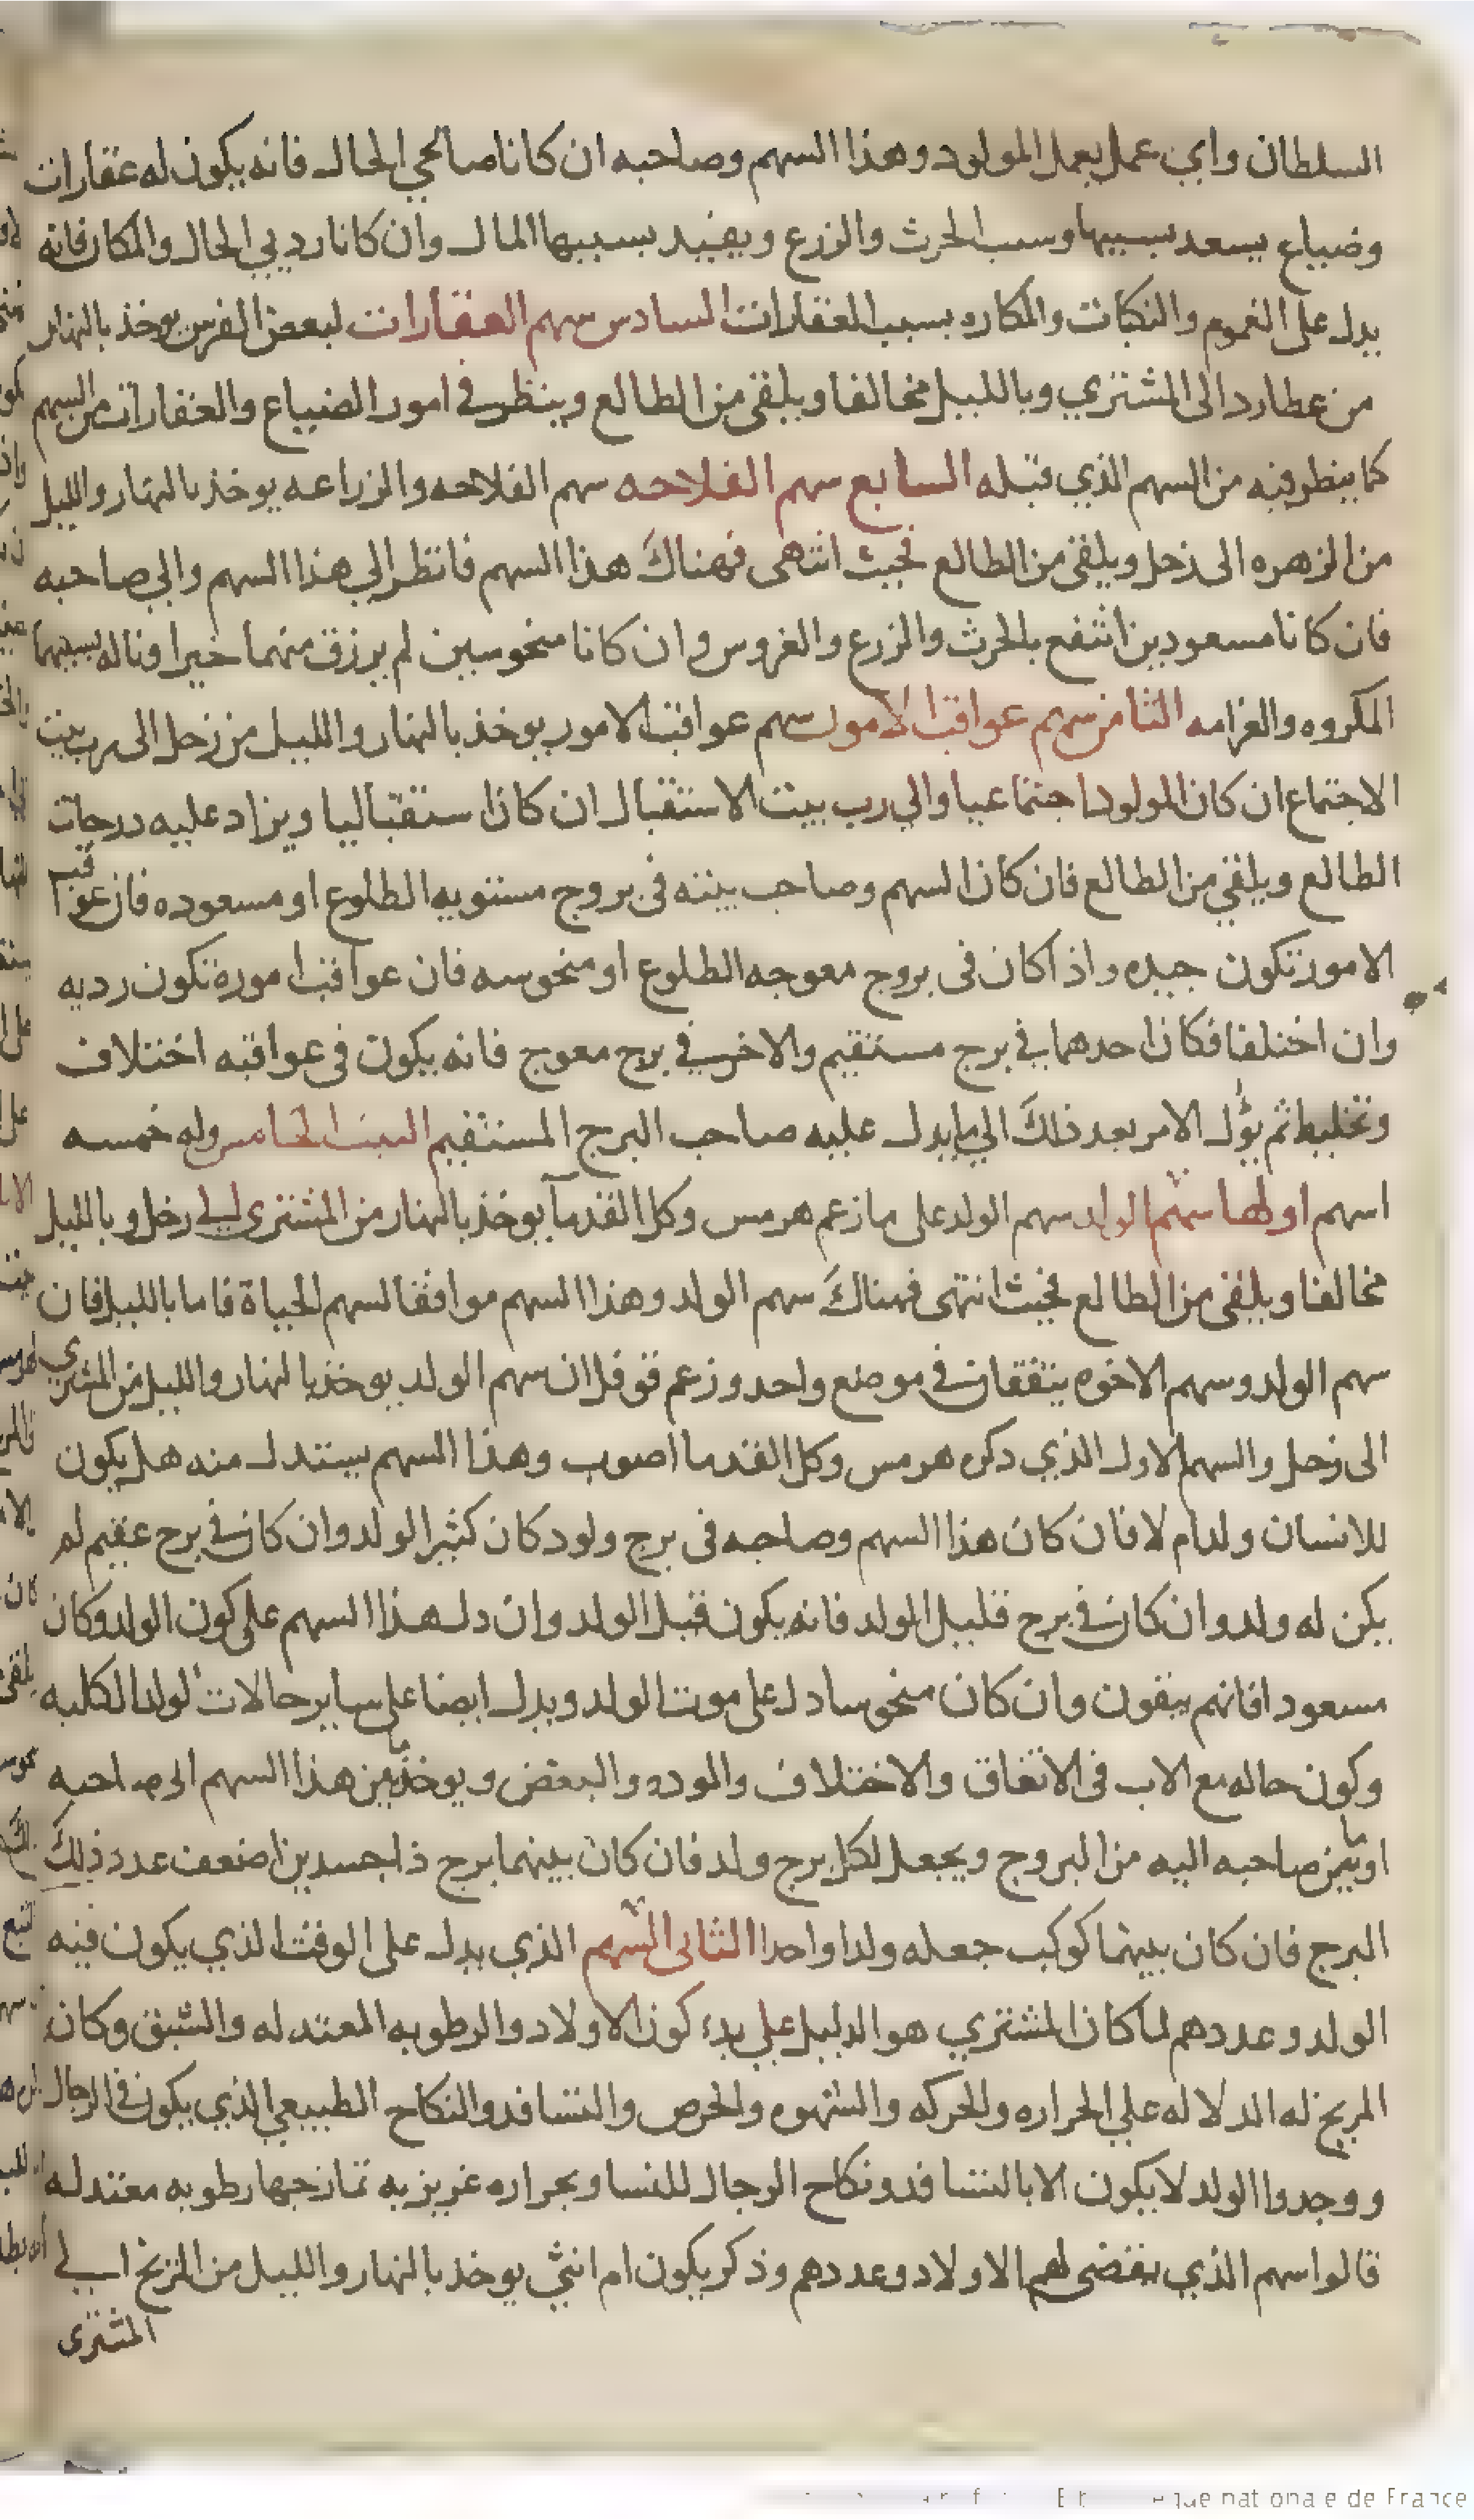 السلطان واي عمل يعمل المولود وهذا السهم وصاحبه ان كانا صالحي الحال فانه يكون له عقارات
وضياع يسعد بسببها وسبب الحرث والزرع ويفيد بسببها المال وان كانا رديي الحال والمكان فانه
يدل على الغموم والنكبات والمكاره بسبب العقارات السادس سهم العقارات لبعض الفرس يوخذ بالنهار
من عطارد الى المشتري وبالليل مخالفا ويلقى من الطالع وينظر في امور الضياع والعقارات من السهم
كما ينظر فيه من السهم الذي قبله السابع سهم الفلاحه سهم الفلاحه والزراعه يوخذ بالنهار والليل
من الزهره الى زحل ويلقى من الطالع فحيث انتهى فهناك هذا السهم فانظر الي هذا السهم والي صاحبه
فان كانا مسعودين انتفع بالحرث والزرع والغروس وان كانا منحوسين لم يرزق منهما خيرا وناله بسببهما
المكروه والغرامه الثامن سهم عواقب الامور سهم عواقب الامور يوخذ بالنهار والليل من زحل الى رب بيت
الاجتماع ان كان المولود اجتماعيا والي رب بيت الاستقبال ان كان استقباليا ويزاد عليه درجات
الطالع ويلقي من الطالع فان كان السهم وصاحب بيته في بروج مستويه الطلوع او مسعوده فان عواقب
الامور تكون جيده واذا كان في بروج معوجه الطلوع او منحوسه فان عواقب اموره تكون رديه
وان اختلفا فكان احدهما في برج مستقيم والاخر في برج معوج فانه يكون في عواقبه اختلاف
وتخليط ثم يؤل الامر بعد ذلك الي ما يدل عليه صاحب البرج المستقيم البيت الخامس وله خمسه
اسهم اولها سهم الولد سهم الولد على ما زعم هرمس وكل القدمآ يوخذ بالنهار من المشتري الى زحل وبالليل
مخالفا ويلقى من الطالع فحيث انتهى فهناك سهم الولد وهذا السهم موافقا لسهم الحياة فاما بالليل فان
سهم الولد وسهم الاخوه يتفقان في موضع واحد وزعم ثوفل ان سهم الولد يوخذ بالنهار والليل من المشتري
الى زحل والسهم الاول الذي دكره هرمس وكل القدما اصوب وهذا السهم يستدل منه هل يكون
للانسان ولد ام لا فان كان هذا السهم وصاحبه في برج ولود كان كثير الولد وان كان في برج عقيم لم
يكن له ولد وان كان في برج قليل الولد فانه يكون قبل الولد وان دل هذا السهم على كون الولد وكان
مسعودا فانهم يبقون وان كان منحوسا دل على موت الولد ويدل ايضا على ساير حالات الولد الكليه
وكون حاله مع الاب في الاتفاق والاختلاف والموده والبغض ويوخذ ما بين هذا السهم الى صاحبه
او ما بين صاحبه اليه من البروج ويجعل لكل برج ولد فان كان بينهما برج ذا جسدين اضعف عدد ذلك
البرج فان كان بينهما كوكب جعله ولدا واحدا الثانى السهم الذي يدل على الوقت الذي يكون فيه
الولد وعددهم لما كان المشتري هو الدليل علي بدء كون الاولاد والرطوبه المعتدله والشبق وكان
المريخ له الدلاله علي الحراره والحركه والشهوه والحرص والتسافد والنكاح الطبيعي الذي يكون في الرجال
ووجدوا الولد لا يكون الا بالتسافد ونكاح الرجال للنسا وبحراره غريزيه تمازجها رطوبه معتدله
قالوا سهم الذي يقضى لهم الاولاد وعددهم وذكر يكون ام انثي يوخذ بالنهار والليل من المريخ الى
المشترى